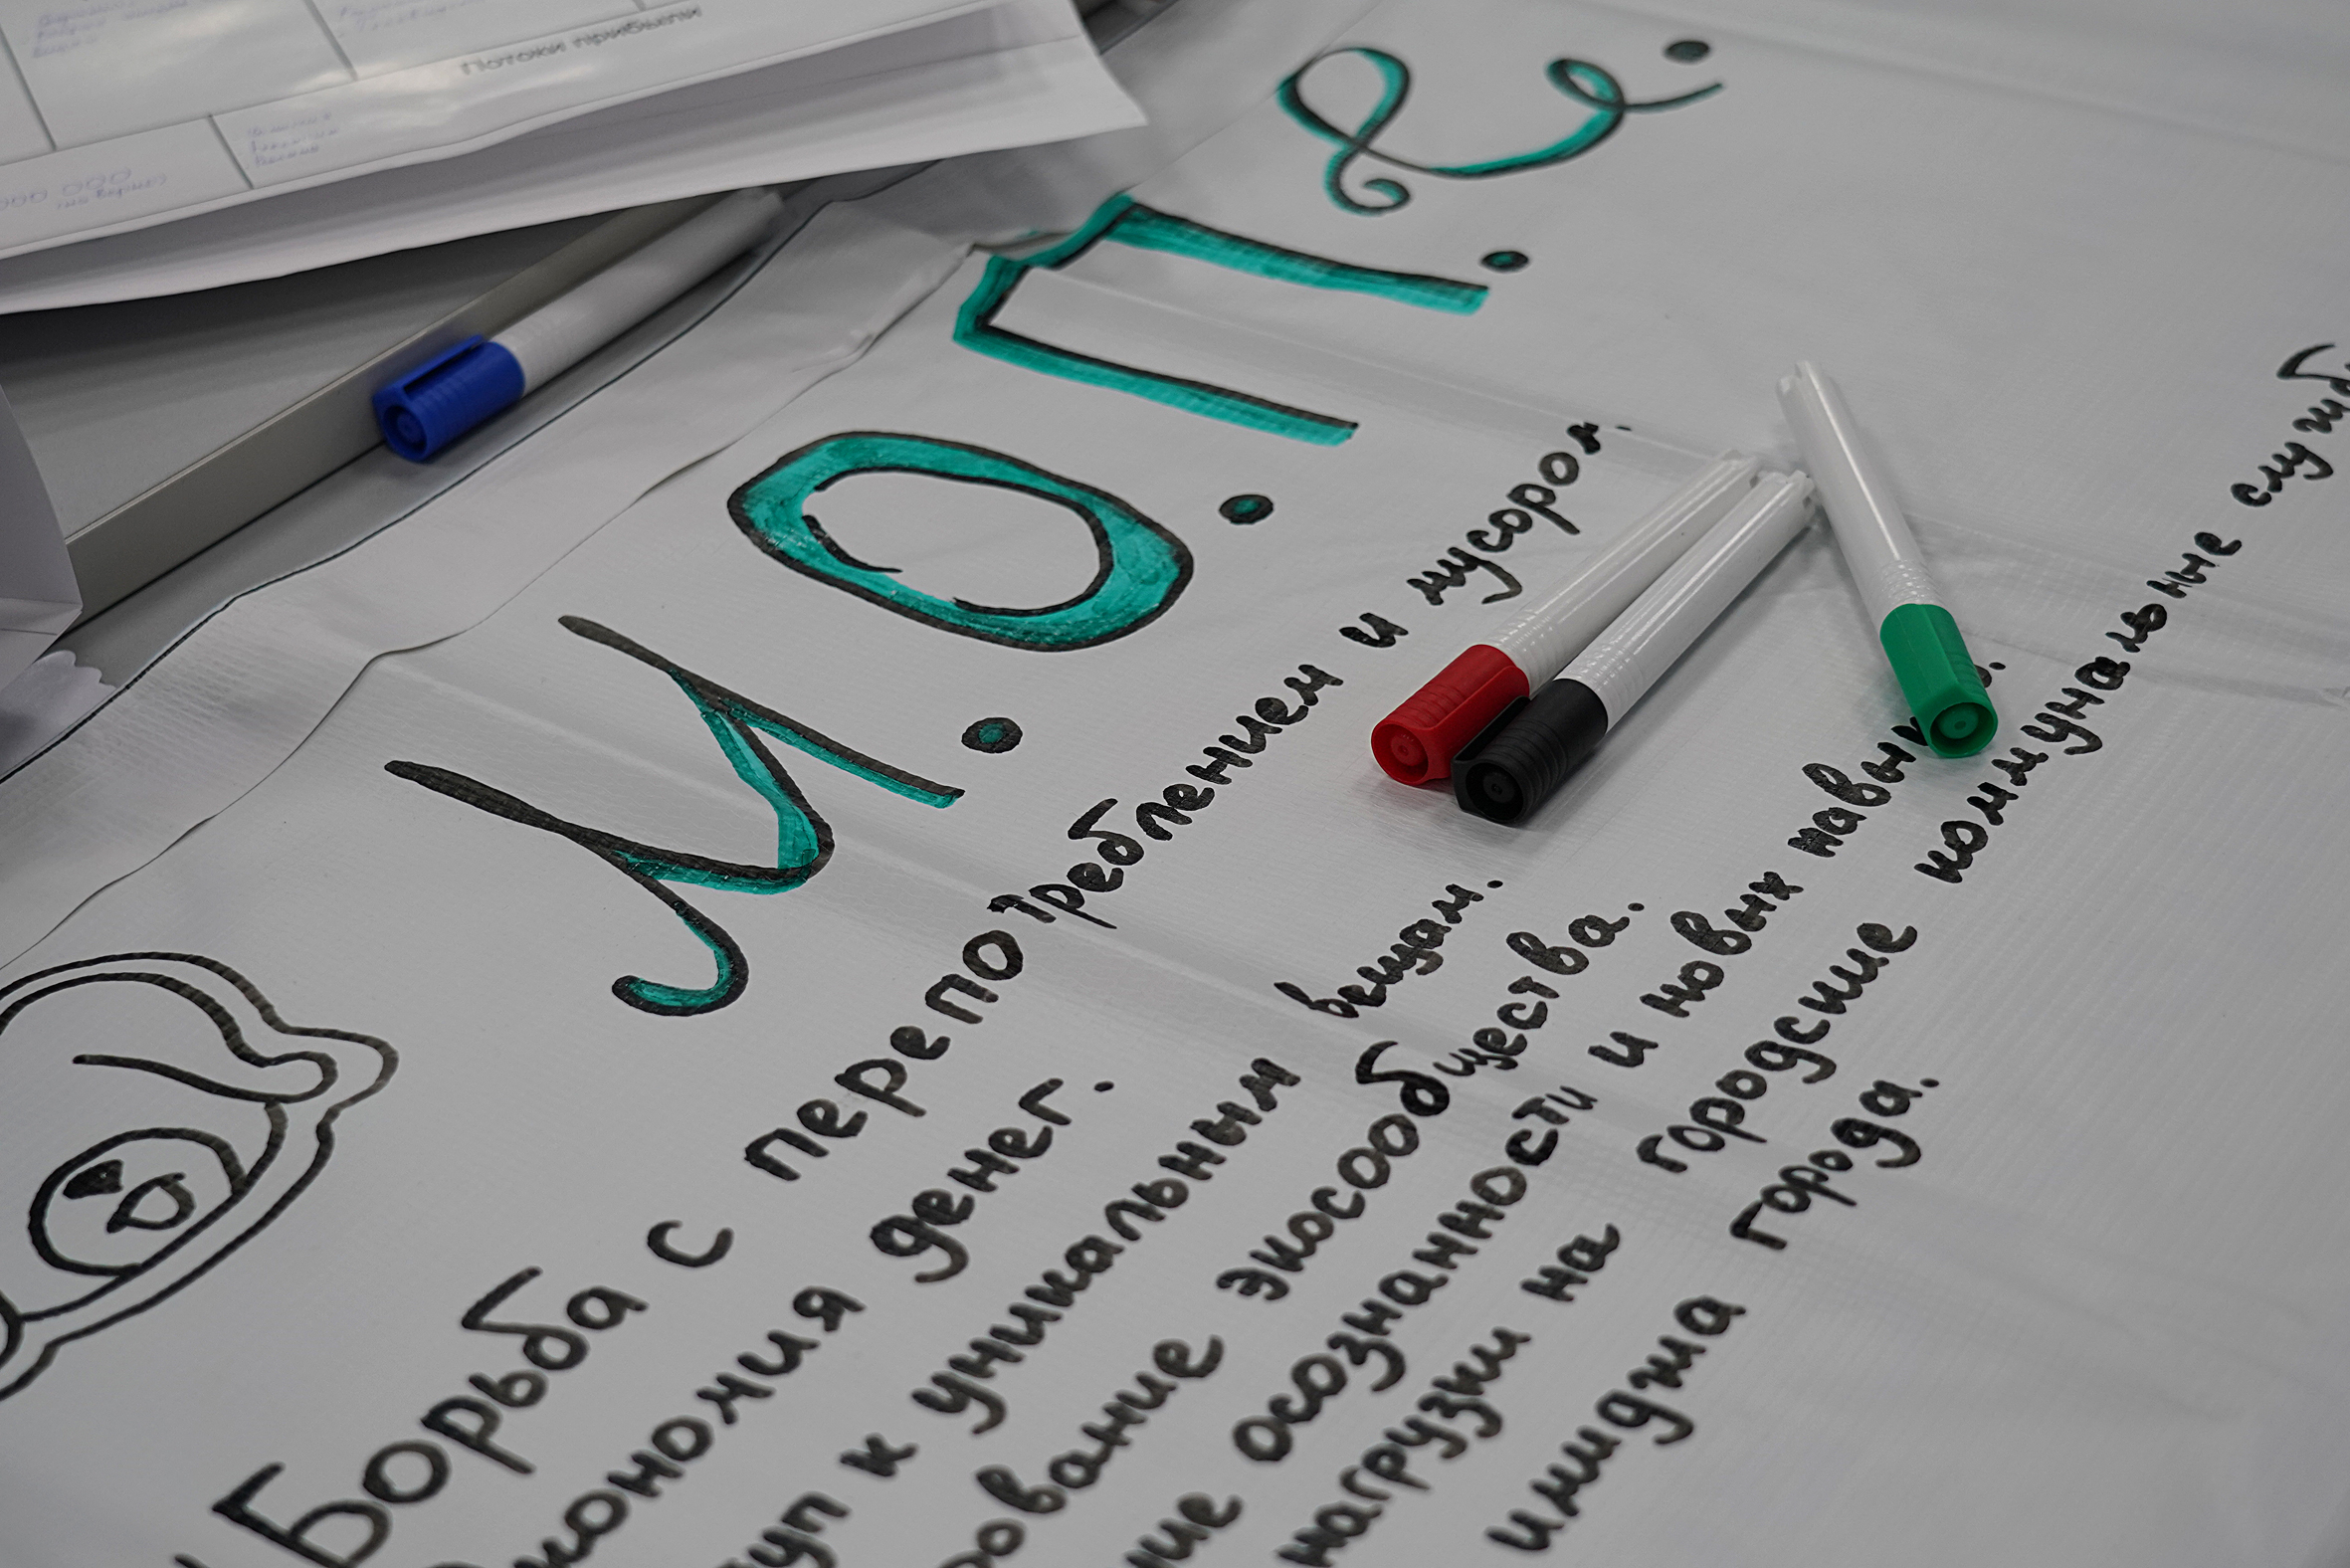 Потоки прибыли
000 000
М.О.П.Я.
Борьба с перепотреблением и мусором.
кономия денег.
туп к уникальным вещам.
рование экосообщества.
ние осознанности и новых навык
нагрузки на городские коммунальные служб
имиджа города.